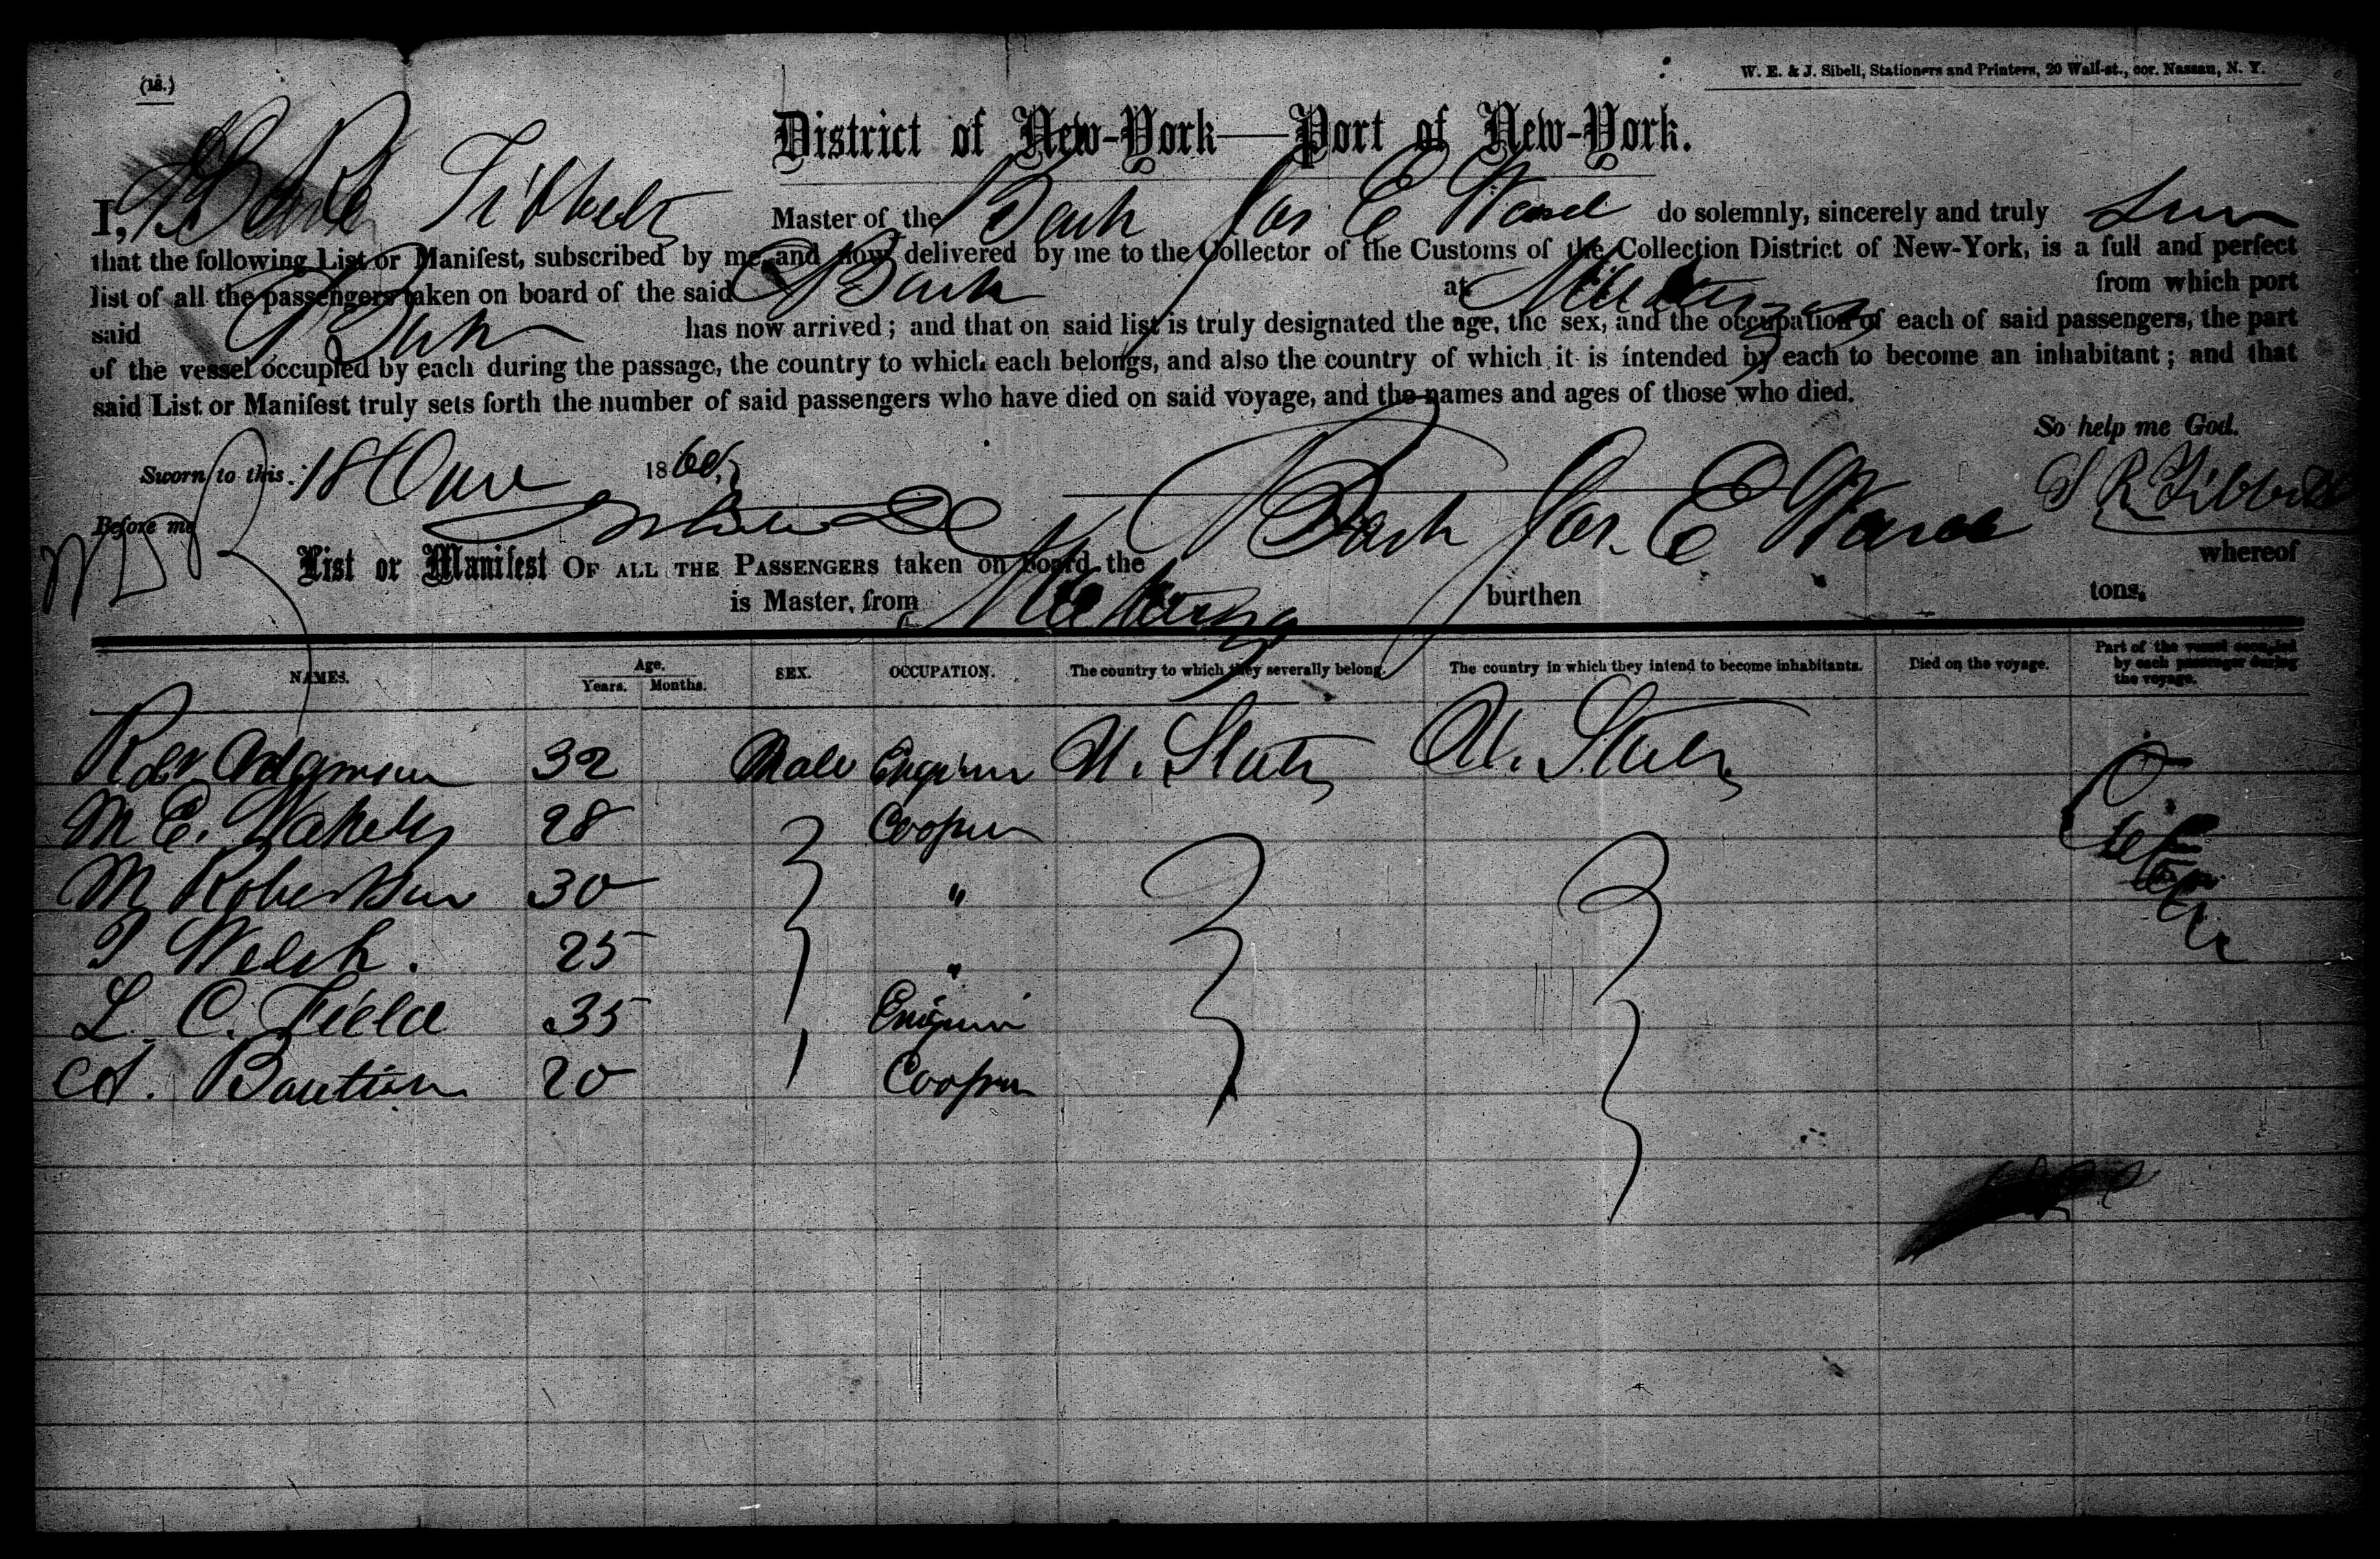 (18.)
W. E. & J. Sibell, Stationers and Printers, 20 Wall-st., cor. Nassau, N. Y.
District of New-York—Port of New-York.
I, Tibbets Master of the Bark Jas E Ward do solemnly, sincerely and truly
that the following List or Manifest, subscribed by me and now delivered by me to the Collector of the Customs of the Collection District of New-York, is a full and perfect
list of all the passengers taken on board of the said Bark at Matanzas from which port
said Bark has now arrived; and that on said list is truly designated the age, the sex, and the occupation of each of said passengers, the part
of the vessel occupied by each during the passage, the country to which each belongs, and also the country of which it is intended by each to become an inhabitant; and that
said List or Manifest truly sets forth the number of said passengers who have died on said voyage, and the names and ages of those who died.
So help me God.
Sworn to this 18 June 1860 S R Tibbets
Before me
List or Manifest OF ALL THE PASSENGERS taken on board the Bark Jas. E Ward whereof
is Master, from Matanzas burthen tons.
NAMES. Age. Years. Months. SEX. OCCUPATION. The country to which they severally belong. The country in which they intend to become inhabitants. Died on the voyage. Part of the vessel occupied by each passenger during the voyage.
Robt Adamson 32 Male Engineer U. States U. States
M. E. Wakely 28 Cooper
M Robertson 30 "
T Welch. 25 "
L. C. Field 35 Engineer
A. Bautian 20 Cooper